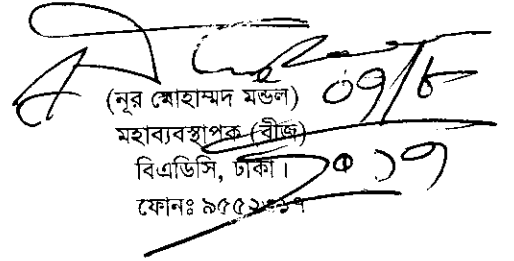 (নূর মোহাম্মদ মন্ডল)
মহাব্যবস্থাপক (বীজ)
বিএডিসি, ঢাকা।
ফোনঃ
০৭/৮
২০১৭